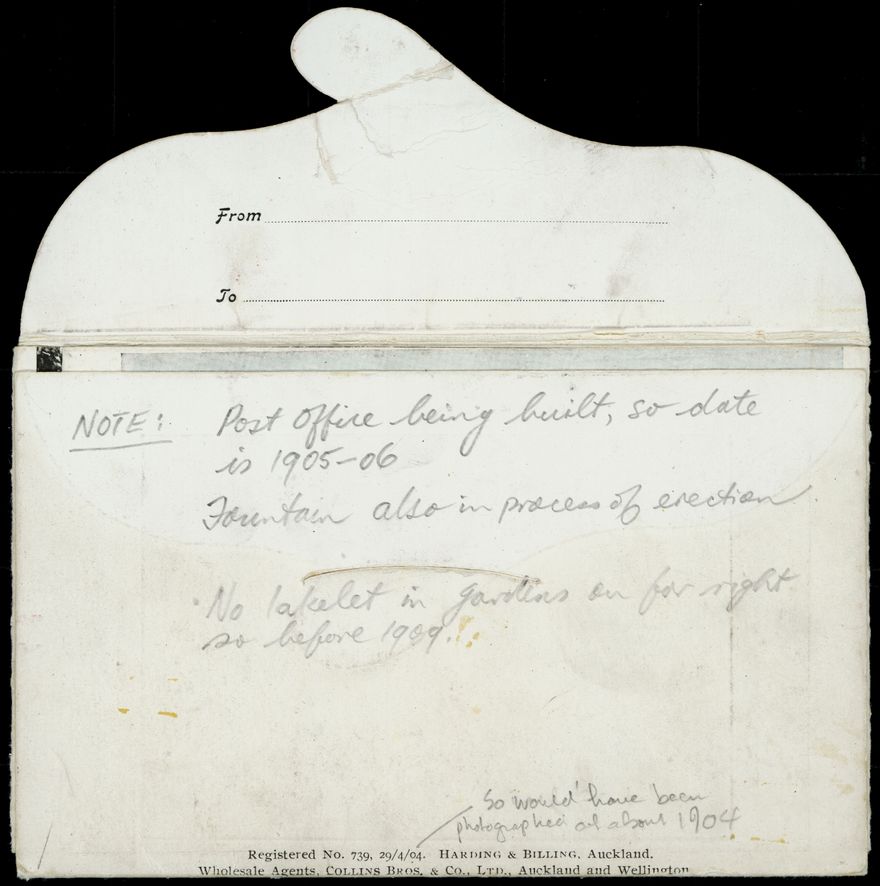 From
To
NOTE: Post Office being built, so date
is 1905-06
Fountain also in process of erection
No lakelet in gardens on far right
so before 1909.
So would have been
photographed at about 1904
Registered No. 739, 29/4/04. HARDING & BILLING, Auckland.
Wholesale Agents, COLLINS BROS. & CO., LTD., Auckland and Wellington